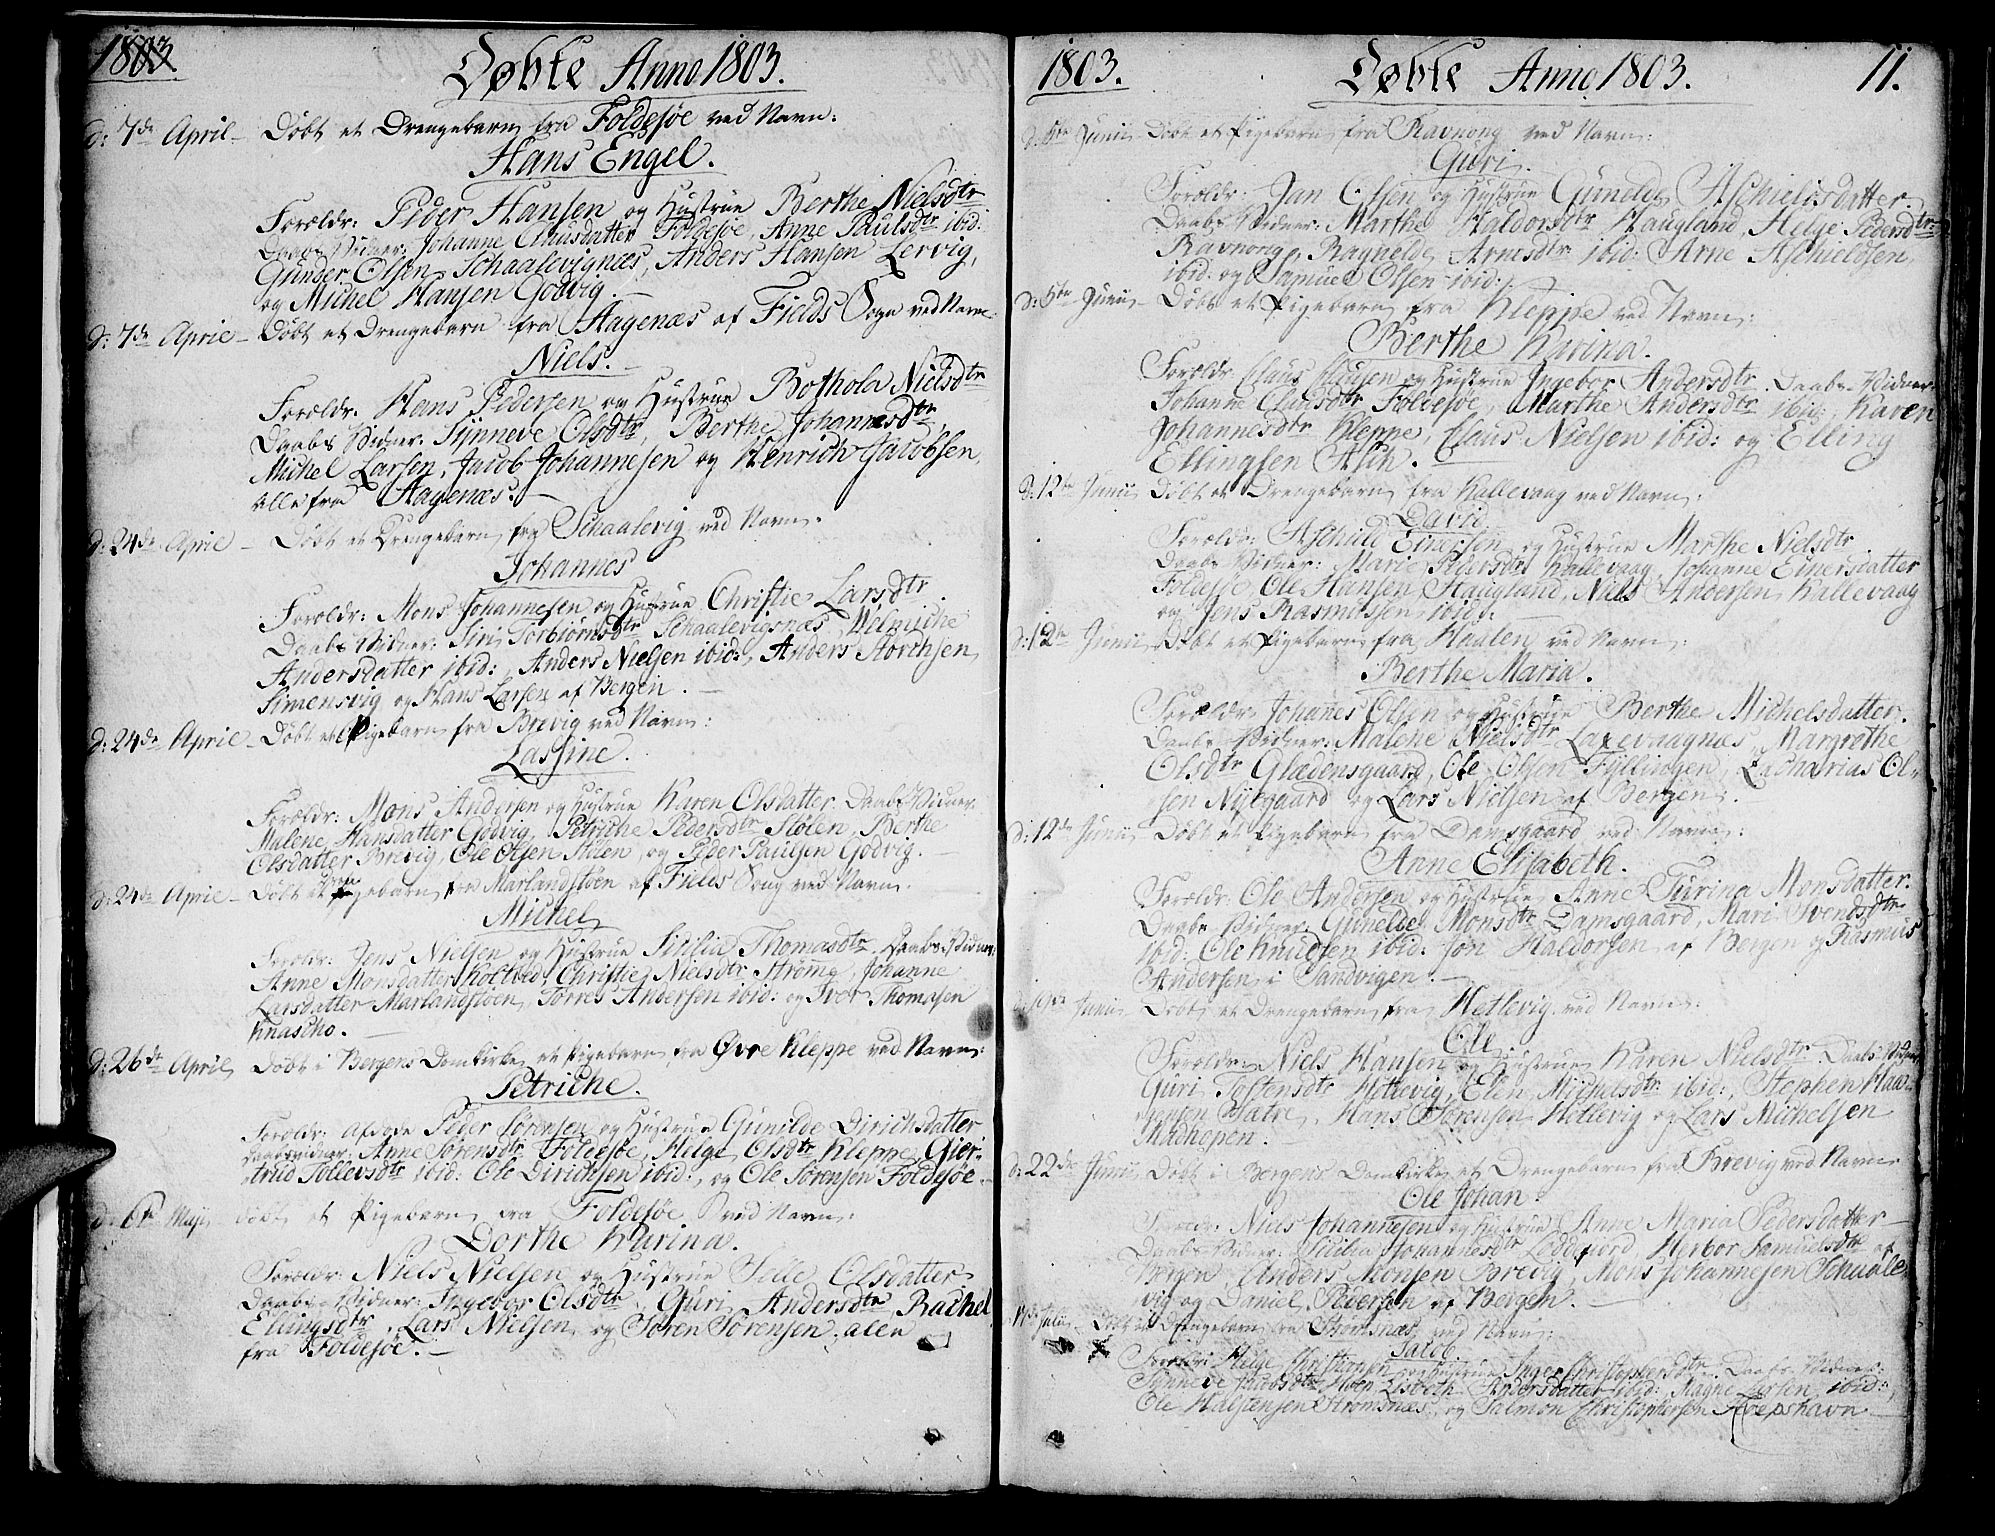 1803.
Døbte Anno 1803.
d: 7de April – Døbt et Drengebarn fra Foldesøe ved Navn:
Hans Engel.
Forældr: Peder Hansen og Hustrue Berthe Nielsdtr
Daabs Vidner: Johanne Clausdatter Foldesøe, Anne Paulsdtr ibid:
Gunder Olsen Schaalevignæs, Anders Hansen Lervig,
og Michel Hansen Godvig. –
d: 7de April – Døbt et Drengebarn fra Hagenæs af Fields Sogn ved Navn:
Niels. –
Forældr: Hans Pedersen og Hustrue Bothola Nielsdtr
Daabs Vidner: Synneve Olsdtr, Berthe Johannesdtr,
Michel Larsen, Jacob Johannesen og Henrich Jacobsen,
alle fra Hagenæs: –
d: 24de April – Døbt et Drengebarn fra Schaalevig ved Navn:
Johannes
Forældr: Mons Johannesen og Hustrue Christie Larsdtr
Daabs Vidner: Siri Torbjørnsdtr Schaalevigsnæs, Welmiche
Andersdatter ibid:, Anders Nielsen ibid:, Anders Storchsen
Simensvig og Hans Larsen af Bergen. –
d: 24de April – Døbt et Pigebarn fra Brevig ved Navn:
Lassine.
Forældr: Mons Andersen og Hustrue Karen Olsdatter. Daabs Vidner:
Malene Hansdatter Godvig, Petriche Pedersdtr Stølen, Berthe
Olsdatter Brevig, Ole Olsen Stølen, og Peder Paulsen Godvig.
d: 24de April – Døbt et Drengebarn fra Marlandstøen af Fields Sogn ved Navn:
Michel
Forældr: Jens Nielsen og Hustrue Sicilia Thomasdtr. Daabs Vidner:
Anne Monsdatter Koltved, Christie Nielsdtr Strømg, Johanne
Larsdatter Marlandstøen, Torres Andersen ibid: og Iver Thomasen
Knascho. –
d: 26de April Døbt i Bergens Domkirke et Pigebarn fra Øvre Kleppe ved Navn:
Petriche.
Forældr: afdøde Peder Sørensen og Hustrue Gunilde Dirichsdatter
Daabsvidner: Anne Sørensdtr Foldesøe, Helge Olsdtr Kleppe, Gier-
trud Tollevsdtr ibid: Ole Dirichsen ibid:, og Ole Sørensen Foldesøe. –
d: 6te Maji – Døbt et Pigebarn fra Foldesøe ved Navn:
Dorthe Karina.
Forældr: Niels Nielsen og Hustrue Sille Olsdatter
Daabs Vidner: Ingebor Olsdtr, Guri Andersdtr Rachel
Ellingsdtr, Lars Nielsen og Søren Sørensen alle
fra Foldesøe. –
1803. Døbte Anno 1803. 11.
d: 5te Junii Døbt et Pigebarn fra Ravnong ved Navn:
Guri.
Forældr: Jan Olsen og Hustrue Gunelde Aschieldsdatter.
Daabs Vidner: Marthe Haldorsdtr Haugland, Helge Pedersdtr:
Ravnong, Ragnelde Arnesdtr ibid: Arne Aschieldsen
ibid: og Samuel Olsen ibid:
d: 5te Junii Døbt et Pigebarn fra Kleppe ved Navn:
Berthe Karina.
Forældr: Claus Clausen og Hustrue Ingebor Andersdtr. Daabs Vidner:
Johanne Clausdtr Foldesøe, Marthe Andersdtr ibid:, Karen
Johannesdtr Kleppe, Claus Nielsen ibid: og Elling
Ellingsen Ask.
d: 12te Junii Døbt et Drengebarn fra Kallevaag ved Navn:
David
Forældr: Aschield Einersen og Hustrue Marthe Nielsdtr
Daabs Vidner: Marie Pedersdtr Kallevaag, Johanne Einersdatter
Foldesøe, Ole Hansen Haugland, Niels Andersen Kallevaag
og Jens Rasmussen ibid:
d: 12te Junii Døbt et Pigebarn fra Haalen ved Navn:
Berthe Maria.
Forældr: Johannes Olsen og Hustrue Berthe Michelsdatter.
Daabs Vidner: Malene Nielsdtr Laxevaagnæs, Margrethe
Olsdtr Glædensgaard, Ole Olsen Fyllingen, Zacharias Ol-
sen Nyegaard og Lars Nielsen af Bergen. –
d: 12te Junii Døbt et Pigebarn fra Damsgaard ved Navn:
Anne Elisabeth.
Forældr: Ole Andersen og Hustrue Anne Turina Monsdatter.
Daabs Vidner: Gunelde Monsdtr Damsgaard, Mari Svendsdtr
ibid: Ole Knudsen ibid: Jon Haldorsen af Bergen og Rasmus
Andersen i Sandvigen. –
d: 19de Junii Døbt et Drengebarn fra Hetlevig ved Navn:
Ole.
Forældr: Niels Hansen og Hustrue Karen Nielsdtr. Daabs Vidner
Guri Tostensdtr Hetlevig, Elen Michelsdtr ibid:, Stephen Haa-
gensen Sætre, Hans Sørensen Hetlevig og Lars Michelsen
Madhopen.
d: 22de Junii Døbt i Bergens Domkirke et Drengebarn fra Brevig ved Navn
Ole Johan:
Forældr: Niels Johannesen og Hustrue Anne Maria Pedersdatter
Daabs Vidner: Sicilia Johannesdtr Loddefiord, Herbor Samuelsdtr af
Bergen, Anders Monsen Brevig, Mons Johannesen Schaale-
vig og Daniel Pedersen af Bergen. –
Julii Døbt et Drengebarn fra Strømsnæs ved Navn:
Jacob
Forældr: Helge Christophersen og Hustrue Inger Christophersdtr. Daabs Vidner:
Synneve Jacobsdtr Hoen, Lisbeth Andersdatter ibid:, Magne Larsen ibid:,
Ole Halstensen Strømsnæs og Salmon Christophersen Alvepshavn